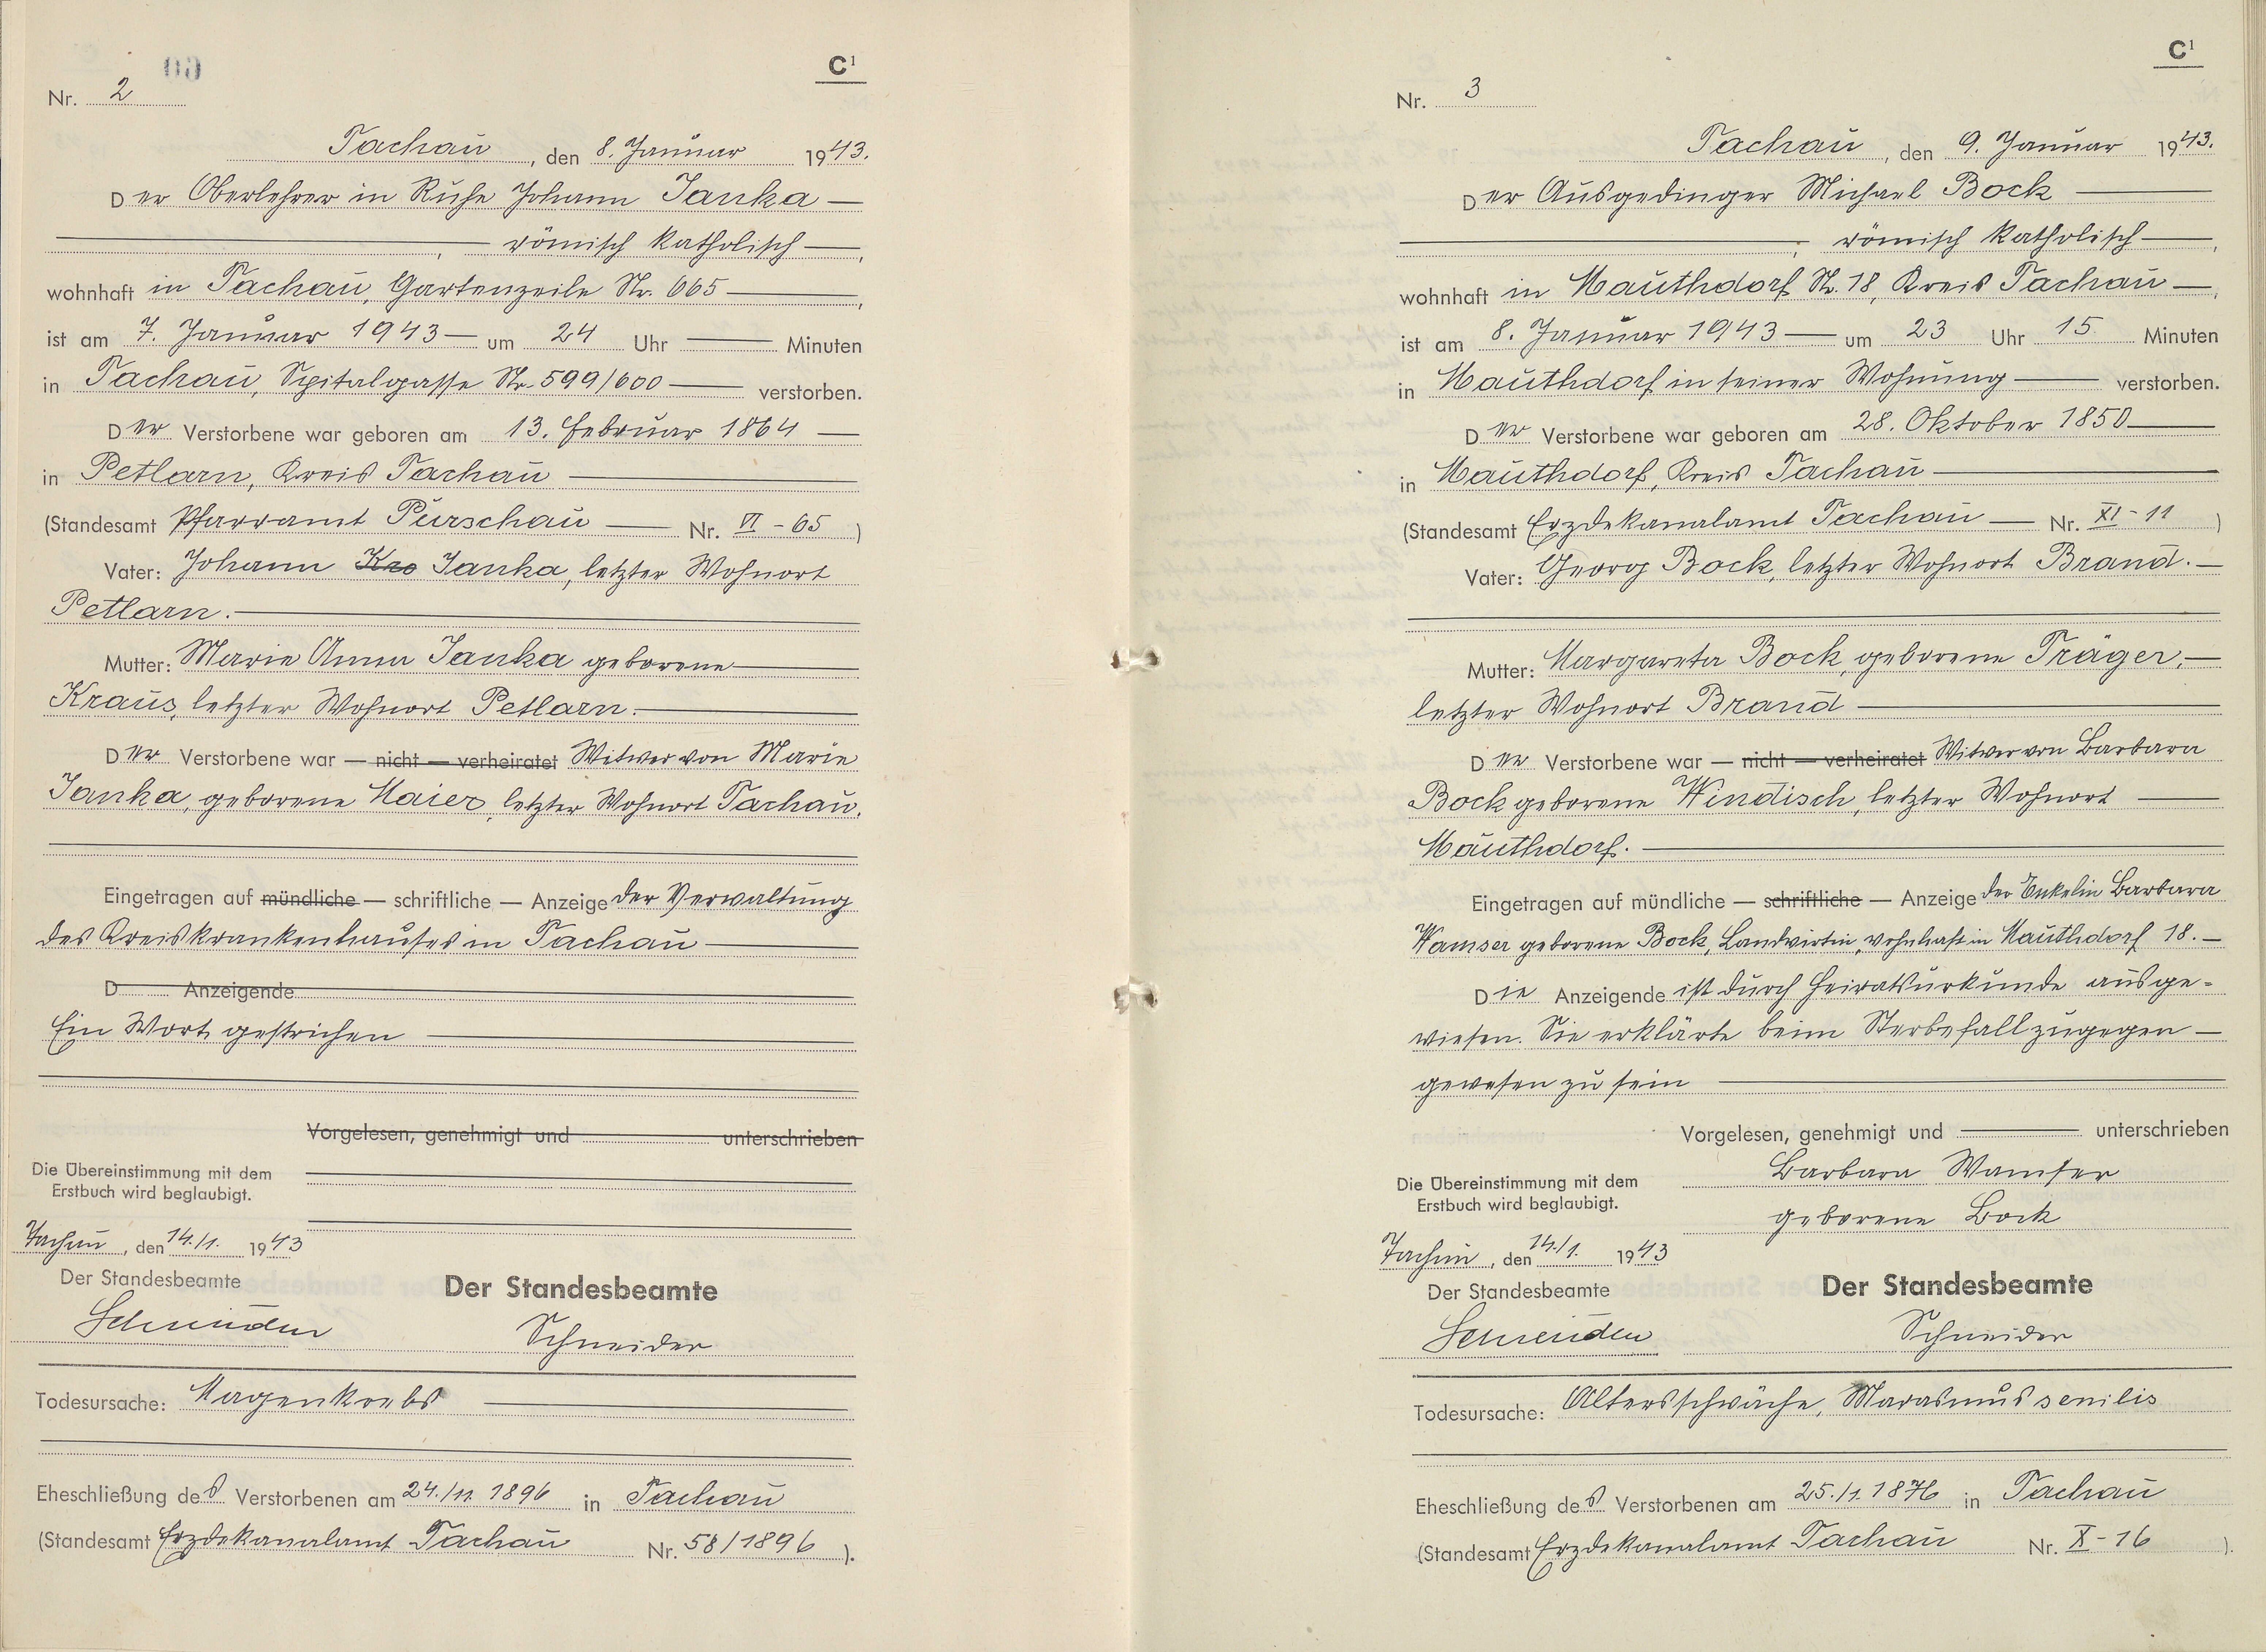 C¹
Nr. 2
Tachau, den 8. Januar 1943.
Der Oberlehrer in Ruhe Johann Janka —
—, römisch katholisch —,
wohnhaft in Tachau, Gartenzeile Nr. 665 —,
ist am 7. Januar 1943 — um 24 Uhr — Minuten
in Tachau, Spitalgasse Nr. 599/600 — verstorben.
Der Verstorbene war geboren am 13. Februar 1864 —
in Petlarn, Kreis Tachau —
(Standesamt Pfarramt Purschau — Nr. VI - 65)
Vater: Johann Kro Janka, letzter Wohnort
Petlarn. —
Mutter: Marie Anna Janka geborene —
Kraus, letzter Wohnort Petlarn. —
Der Verstorbene war — nicht — verheiratet Witwer von Marie
Janka, geborene Maier, letzter Wohnort Tachau.
Eingetragen auf mündliche — schriftliche — Anzeige der Verwaltung
des Kreiskrankenhauses in Tachau —
D Anzeigende
Ein Wort gestrichen —
Vorgelesen, genehmigt und unterschrieben
Die Übereinstimmung mit dem
Erstbuch wird beglaubigt.
Tachau, den 14./1. 1943
Der Standesbeamte
Schneider
Der Standesbeamte
Schneider
Todesursache: Magenkrebs —
Eheschließung des Verstorbenen am 24./11. 1896 in Tachau
(Standesamt Erzdekanalamt Tachau Nr. 58/1896).
C¹
Nr. 3
Tachau, den 9. Januar 1943.
Der Ausgedinger Michael Bock —
—, römisch katholisch —,
wohnhaft in Mauthdorf Nr. 18, Kreis Tachau —,
ist am 8. Januar 1943 — um 23 Uhr 15 Minuten
in Mauthdorf in seiner Wohnung — verstorben.
Der Verstorbene war geboren am 28. Oktober 1850 —
in Mauthdorf, Kreis Tachau —
(Standesamt Erzdekanalamt Tachau — Nr. XI - 11)
Vater: Georg Bock, letzter Wohnort Brand. —
Mutter: Margareta Bock, geborene Träger, —
letzter Wohnort Brand —
Der Verstorbene war — nicht — verheiratet Witwer von Barbara
Bock geborene Windisch, letzter Wohnort —
Mauthdorf. —
Eingetragen auf mündliche — schriftliche — Anzeige der Enkelin Barbara
Wamser geborene Bock, Landwirtin, wohnhaft in Mauthdorf 18. —
Die Anzeigende ist durch Heiratsurkunde ausge-
wiesen. Sie erklärte beim Sterbefall zugegen —
gewesen zu sein —
Vorgelesen, genehmigt und — unterschrieben
Barbara Wamser
geborene Bock
Die Übereinstimmung mit dem
Erstbuch wird beglaubigt.
Tachau, den 14./1. 1943
Der Standesbeamte
Schneider
Der Standesbeamte
Schneider
Todesursache: Altersschwäche, Marasmus senilis
Eheschließung des Verstorbenen am 25./1. 1876 in Tachau
(Standesamt Erzdekanalamt Tachau Nr. X - 16).